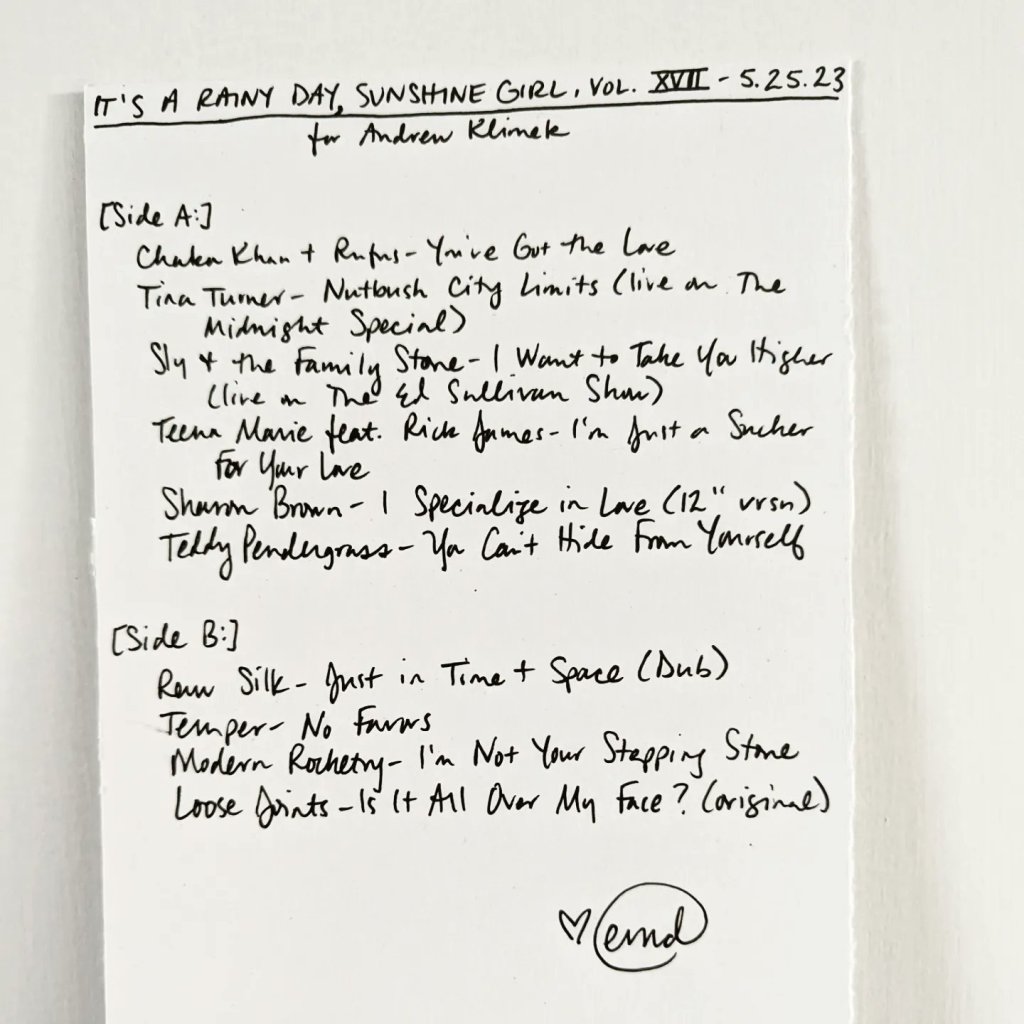 IT'S A RAINY DAY, SUNSHINE GIRL, VOL. XVII - 5.25.23
for Andrew Klimek
[Side A:]
Chaka Khan + Rufus - You've Got the Love
Tina Turner - Nutbush City Limits (live on The
Midnight Special)
Sly + the Family Stone - I Want to Take You Higher
(live on The Ed Sullivan Show)
Teena Marie feat. Rick James - I'm Just a Sucker
For Your Love
Sharon Brown - I Specialize in Love (12" vrsn)
Teddy Pendergrass - You Can't Hide From Yourself
[Side B:]
Raw Silk - Just in Time + Space (Dub)
Temper - No Favors
Modern Rocketry - I'm Not Your Stepping Stone
Loose Joints - Is It All Over My Face? (original)
♡ emd